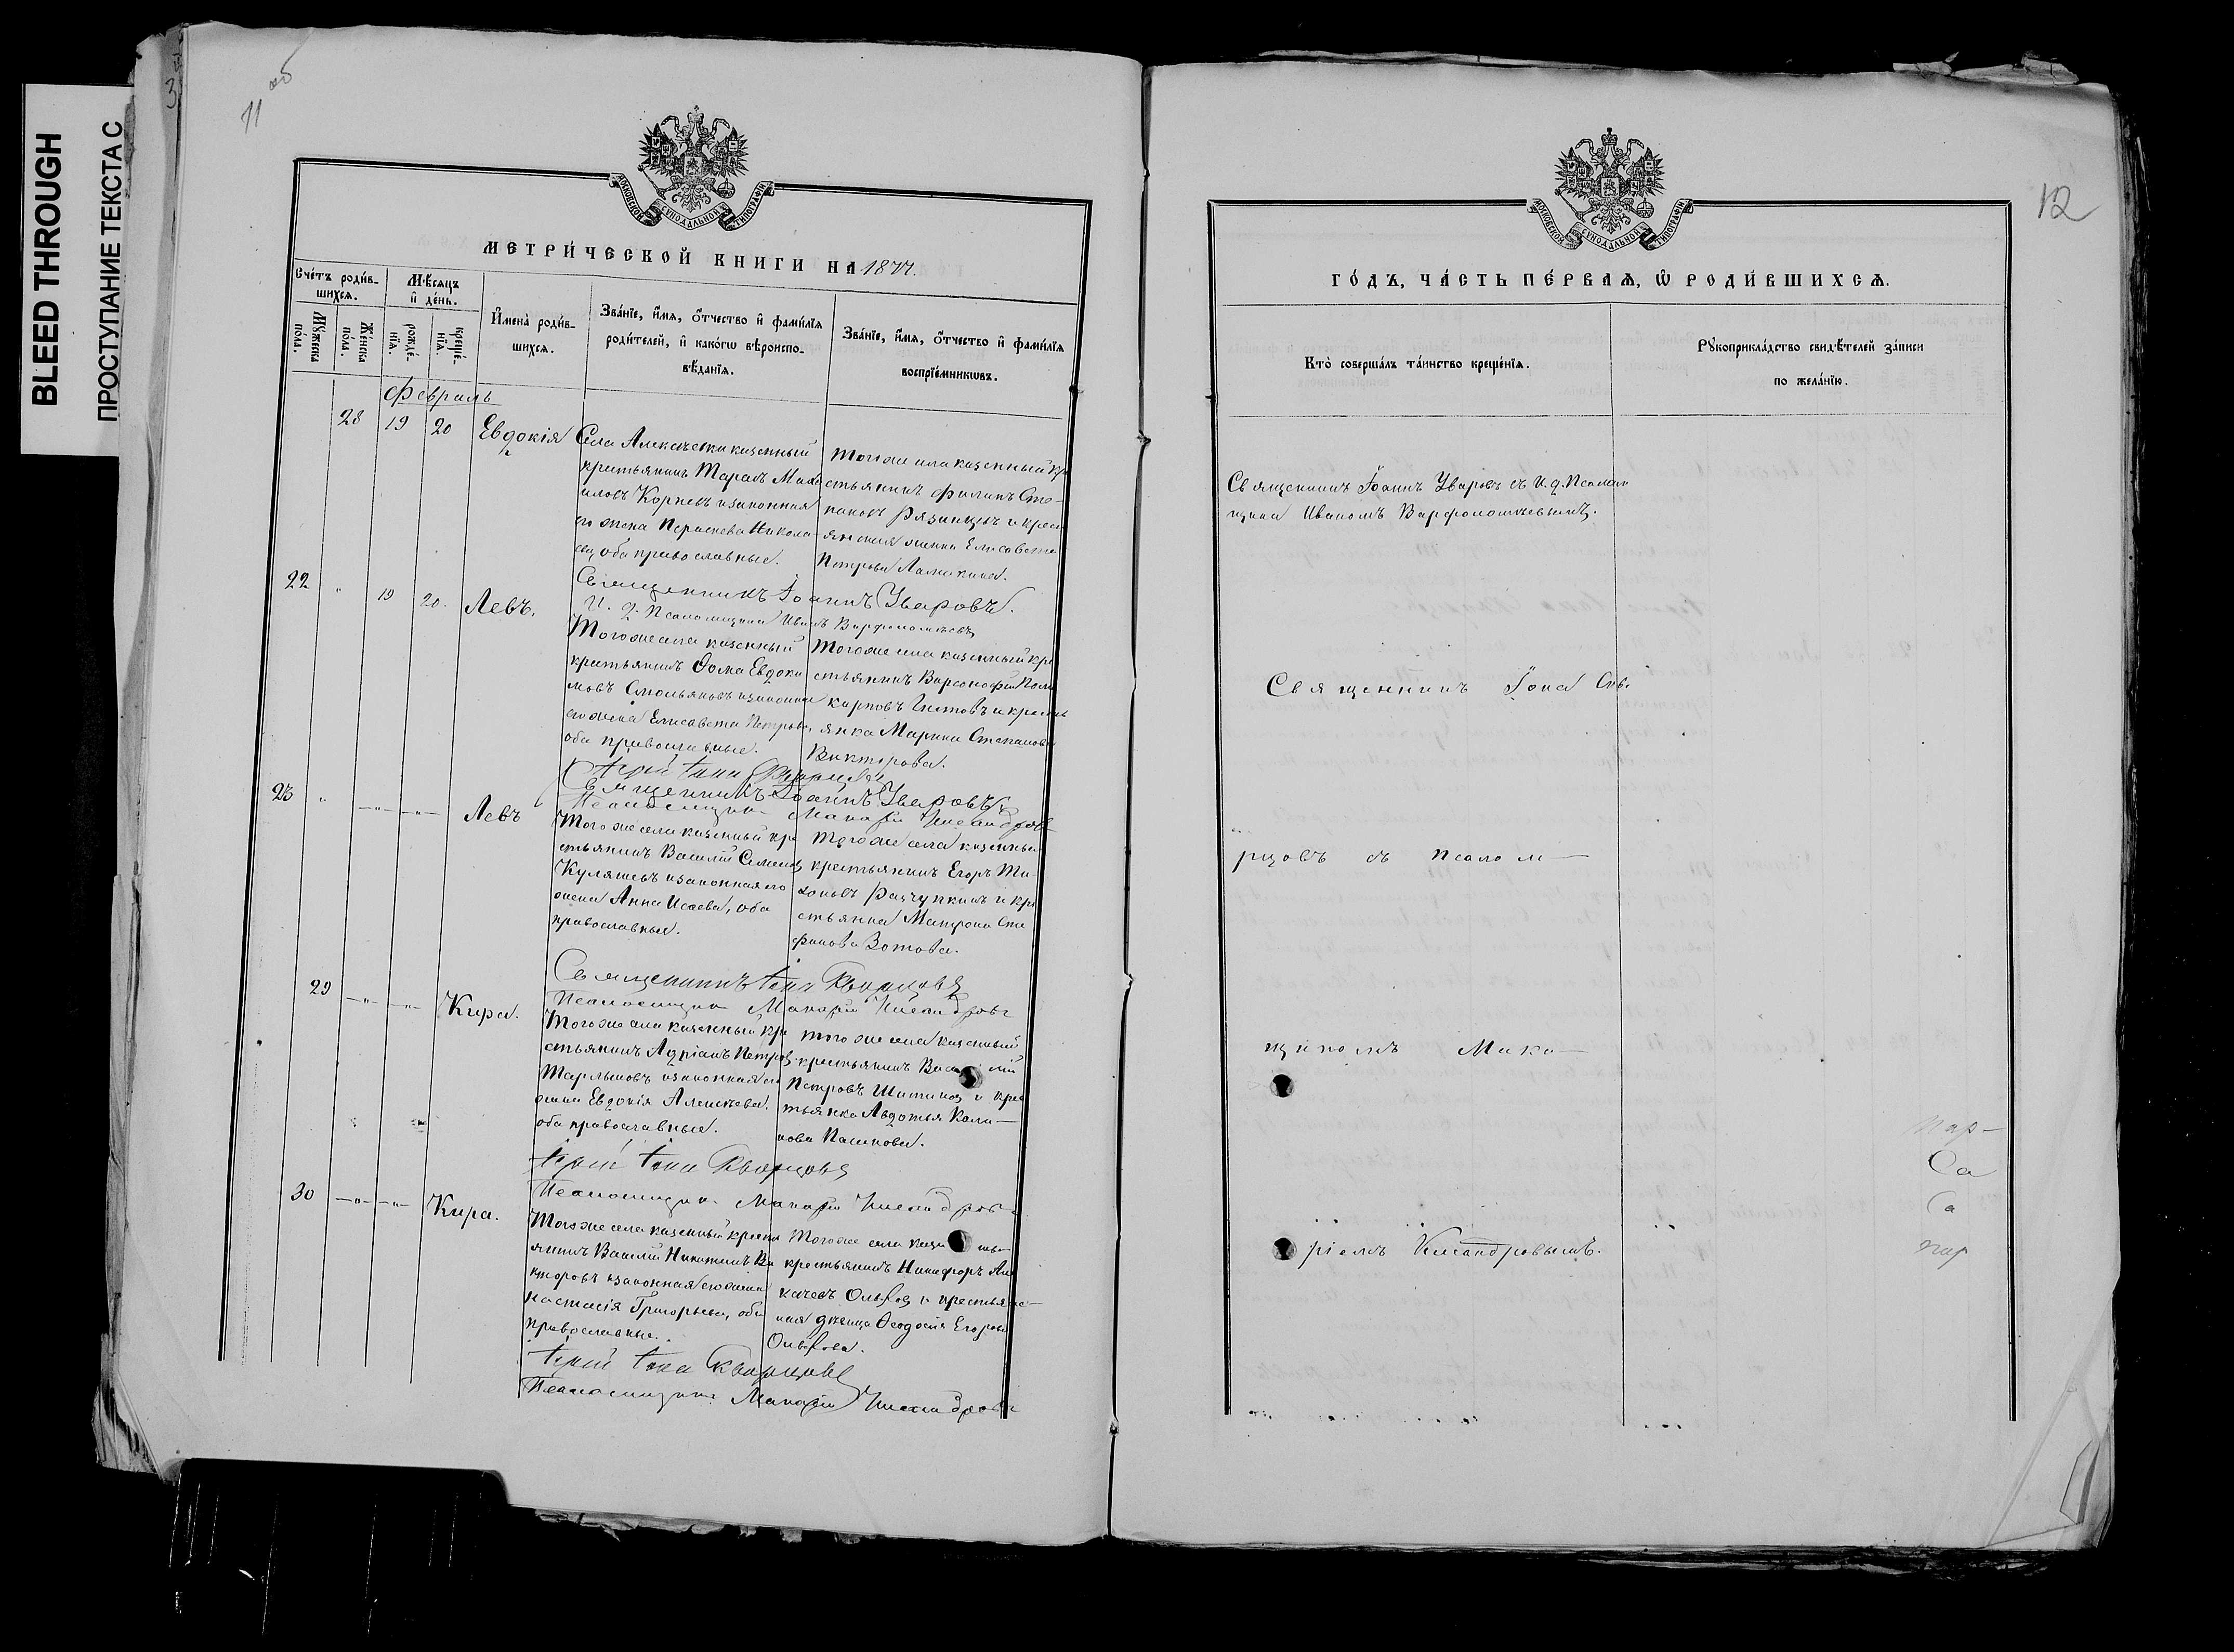 BLEED THROUGH
ПРОСТУПАНИЕ ТЕКСТА С
3
11 об
МОСКОВСКОЙ СУНОДАЛЬНОЙ ТИПОГРАФІИ
МЕТРИ́ЧЕСКОЙ КНИГИ НА 1877.
Сче́тъ роди́в-
шихсѧ.
Мꙋ́жеска
по́ла.
Же́нска
по́ла.
Мѣ́сѧцъ
и҆ де́нь.
рожде́-
нїѧ.
креще́-
нїѧ.
И҆мена̀ роди́в-
шихсѧ.
Зва́нїе, и҆́мѧ, ѻ҆́тчество и҆ фами́лїѧ
роди́телей, и҆ како́гѡ вѣроиспо-
вѣ́данїѧ.
Зва́нїе, и҆́мѧ, ѻ҆́тчество и҆ фами́лїѧ
воспрїе́мникѡвъ.
Февраль
28 19 20 Евдокія
Села казенный
крестьянинъ Тарасъ Миха
иловъ Корневъ изаконная
его жена Параскева Никола
ева, оба православные.
Тогоже села казенный кре
стьянинъ Филипъ Сте-
пановъ Рязанцевъ и крест
янская жена Елисавета
Петрова
Священникъ Іоаннъ Уваровъ.
И. д. Псаломщика Иванъ Варфоломѣевъ
22 " 19 20. Левъ.
Тогоже села казенный
крестьянинъ Ѳома Евдоки
мовъ Смольяковъ изаконная
его жена Елисавета Петрова,
оба православные.
Тогоже села казенный кре
стьянинъ Варсонофій Поли
карповъ и кресть
янка Марина Степанова
Викторова.
Іерей Іона Скворцовъ
Священникъ Іоаннъ Уваровъ
Псаломщикъ Макарій Никандровъ
23 " —"— —"— Левъ
Тогоже села казенный кре
стьянинъ Василій Семеновъ
Куляшевъ изаконная его
жена Анна Исаева, оба
православные.
Тогоже села казенный
крестьянинъ Егоръ Ти-
хоновъ и кре
стьянка Матрона Сте
фанова Зотова.
Священникъ Іона Скворцовъ
Псаломщикъ Макарій Никандровъ
29 —"— —"— Кира.
Тогоже села казенный кре
стьянинъ Адріанъ Петровъ
изаконная его
жена Евдокія Алексѣева.
оба православные.
Тогоже села казенный
крестьянинъ Васи лій
Петровъ и крес
тьянка Авдотья Кали—
нова Пашкова.
Іерей Іона Скворцовъ
Псаломщикъ Макарій Никандровъ
30 —"— —"— Кира.
Тогоже села казенный кресть
янинъ Василій Никитинъ Ви
кторовъ изаконная его жена
Настасія Григорьева, оба
православные.
Тогоже села
крестьянинъ Никифоръ
и крестьянс—
кая дѣвица Ѳеодосія Егорова
Іерей Іона Скворцовъ
Псаломщикъ Макарій Никандровъ
12
МОСКОВСКОЙ СУНОДАЛЬНОЙ ТИПОГРАФІИ
ГО́ДЪ, ЧА́СТЬ ПЕ́РВАѦ, Ѽ РОДИ́ВШИХСѦ.
Кто̀ соверша́лъ та́инство креще́нїѧ.
Рꙋкоприкла́дство свидѣ́телей за́писи
по жела́нїю.
Священникъ Іоаннъ Уваровъ съ И. д. Псалом
щика Иваномъ Варфоломѣевымъ.
Священникъ Іона Скво
рцовъ съ псалом—
щикомъ Мака—
ріемъ Никандровымъ.